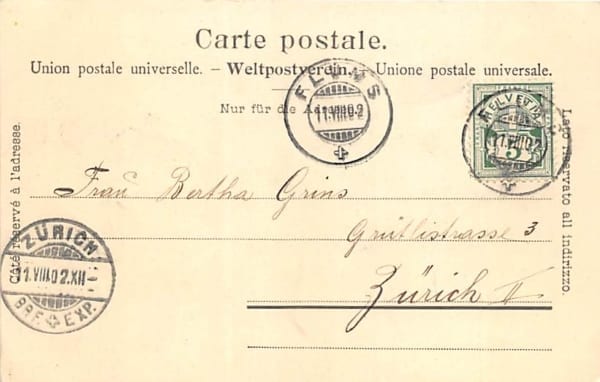 Carte postale.
Union postale universelle. – Weltpostverein. – Unione postale universale.
Nur für die Adresse.
FLUMS
11.VIII.02
HELVETIA
5
11.VIII.02
Côté réservé à l'adresse.
Lato riservato all indirizzo.
Frau Bertha Grins
Grütlistrasse 3
Zürich II
ZÜRICH
11.VIII.02.XII
BRF. EXP.